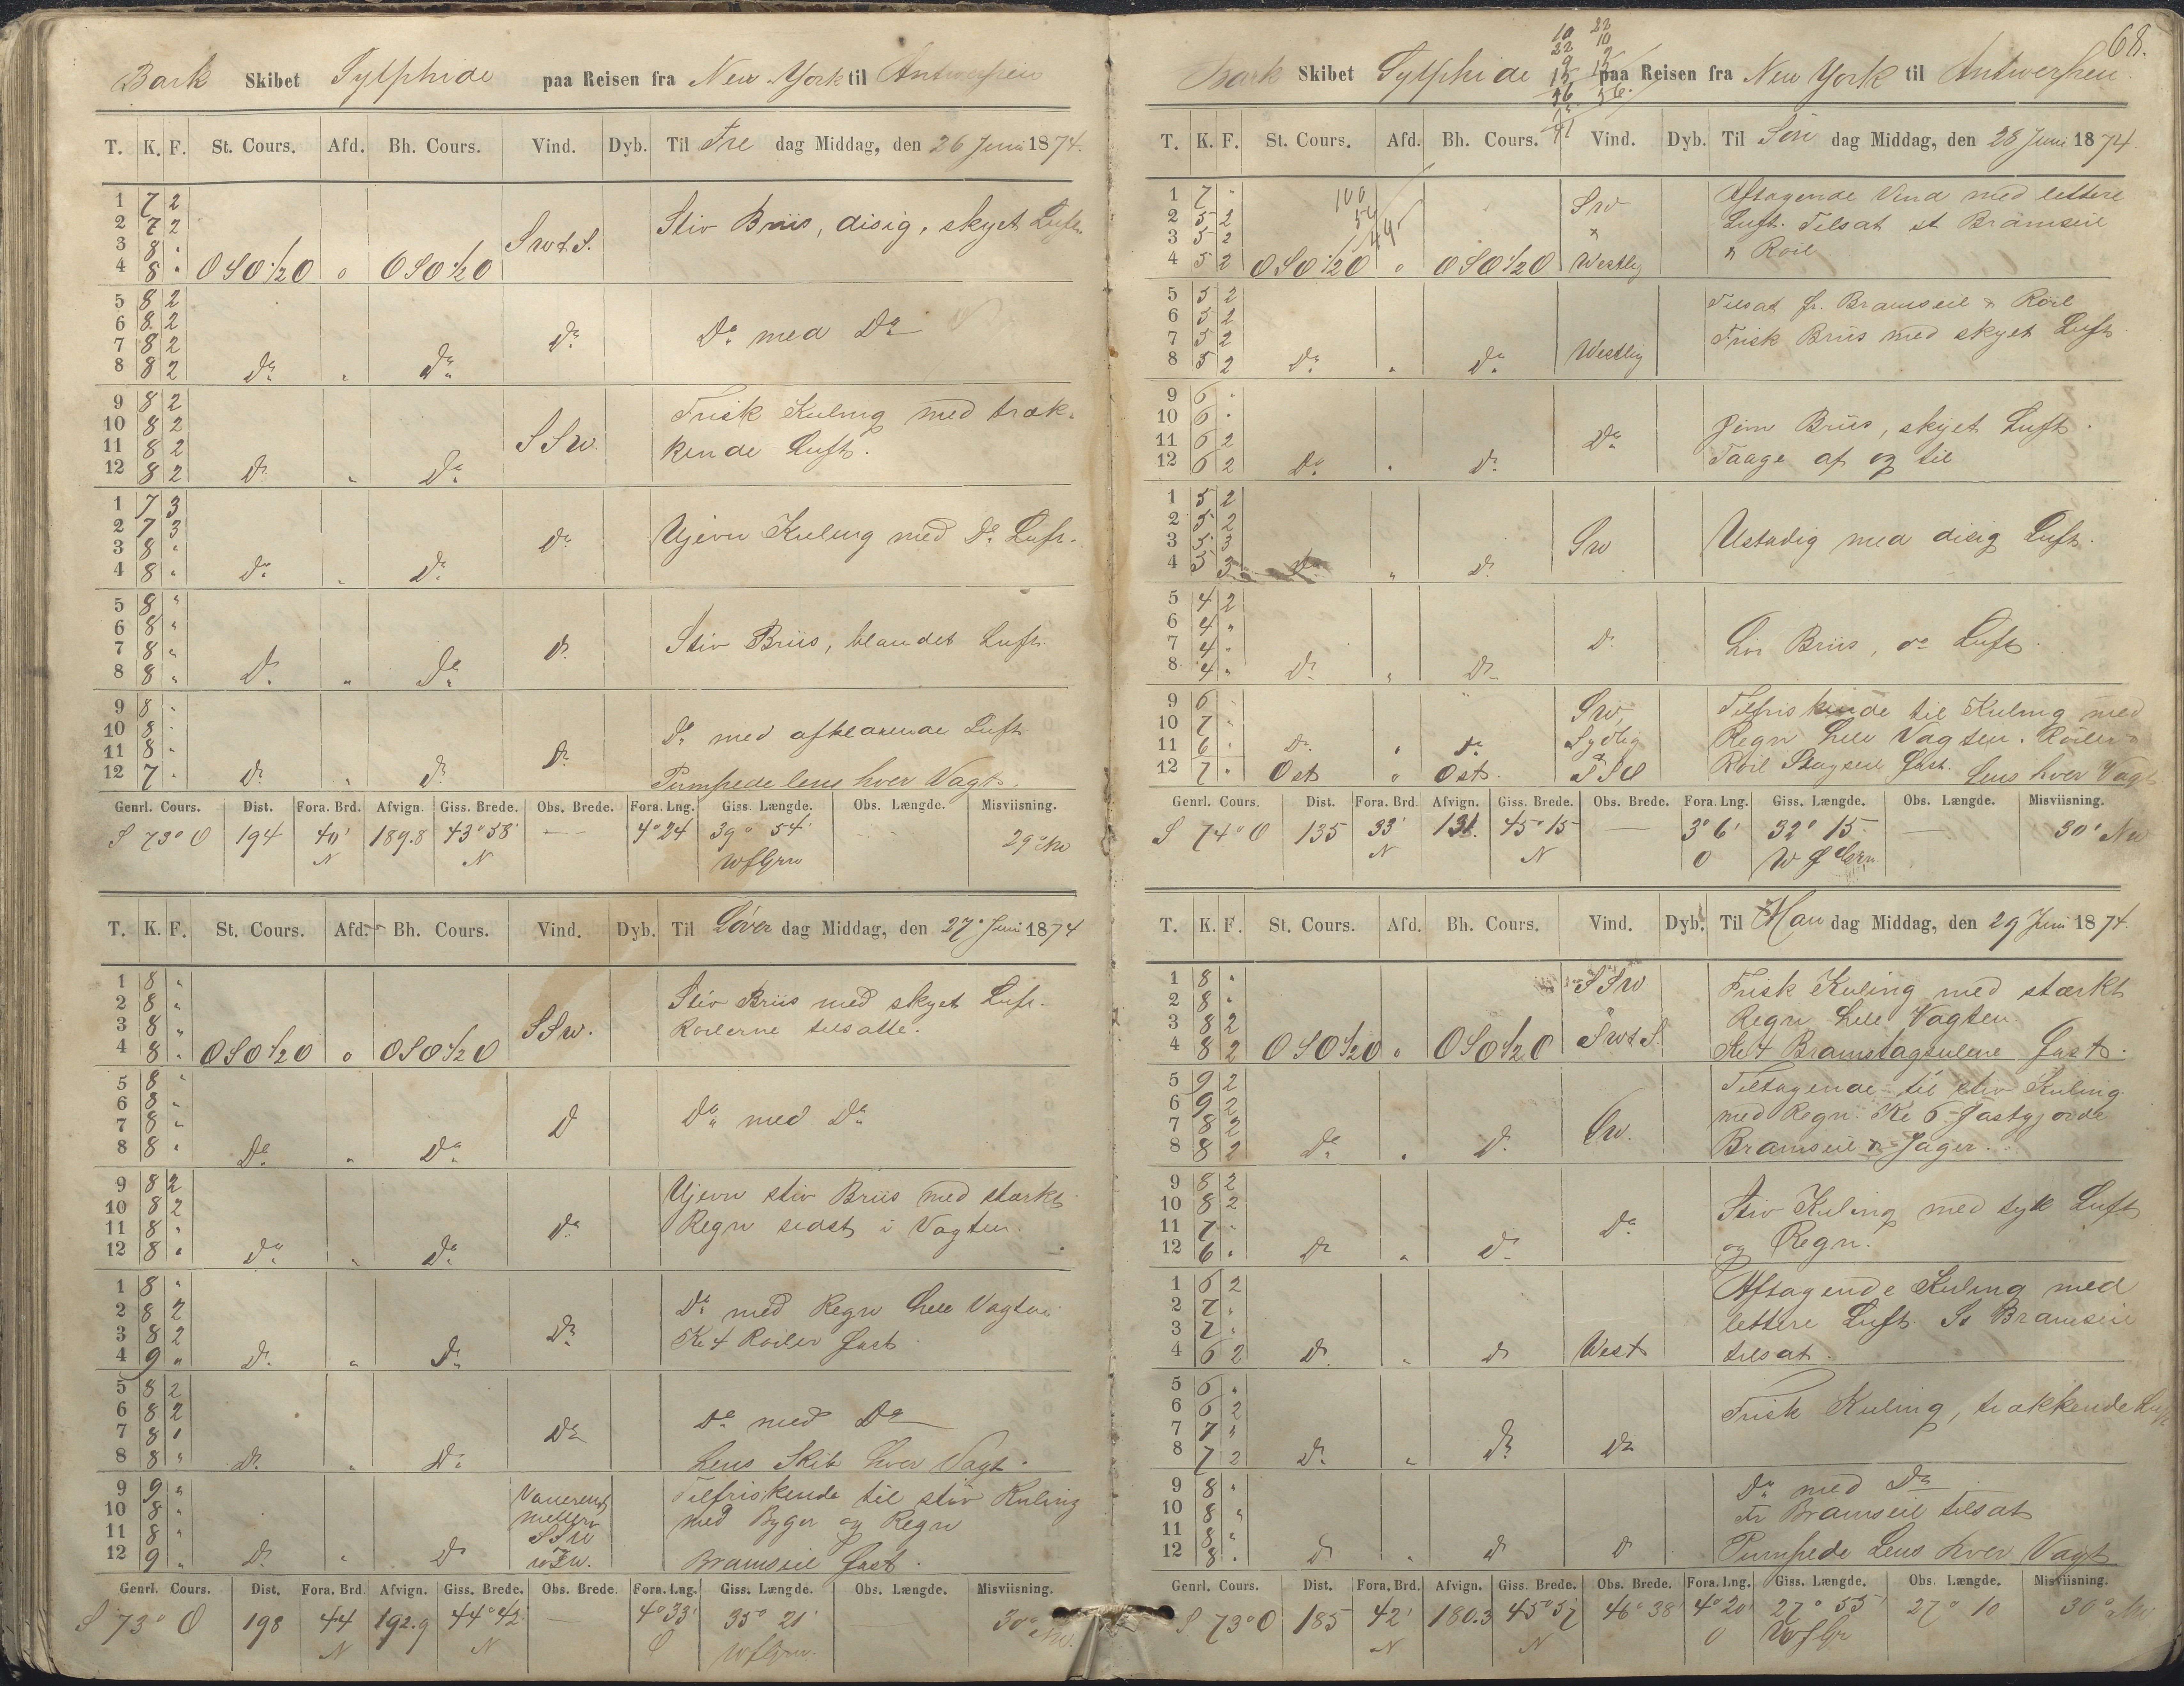 Bark Skibet Sylphide paa Reisen fra New York til Antwerpen
T. K. F. St. Cours. Afd. Bh. Cours. Vind. Dyb. Til Fre dag Middag, den 26 Juni 1874.
1 7 2
2 7 2 Stiv Briis, disig, skyet Luft.
3 8 " SW t. S.
4 8 " OSO 1/2 O o OSO 1/2 O
5 8 2
6 8 2
7 8 2 Do Do med Do
8 8 2 Do " Do
9 8 2 Frisk Kuling med træk-
10 8 2
11 8 2 SSW. kende Luft.
12 8 2 Do " Do
1 7 3
2 7 3 Do Ujevn Kuling med Do Luft.
3 8 "
4 8 " Do " Do
5 8 "
6 8 "
7 8 " Do Stiv Briis, blandet Luft
8 8 " Do " Do
9 8 "
10 8 " Do med afklarende Luft
11 8 " Do
12 7 " Do " Do Pumpede lens hver Vagt.
Genrl. Cours. Dist. Fora. Brd. Afvign. Giss. Brede. Obs. Brede. Fora. Lng. Giss. Længde. Obs. Længde. Misviisning.
S 73° O 194 40' 189.8 43° 58' — 4° 24 39° 54' 29° NW
N N WfGrw
T. K. F. St. Cours. Afd. Bh. Cours. Vind. Dyb. Til Löver dag Middag, den 27 Juni 1874
1 8 " Stiv Briis med skyet Luft.
2 8 " Roilerne tilsatte.
3 8 " SSW.
4 8 " OSO 1/2 O o OSO 1/2 O
5 8 "
6 8 " Do med Do
7 8 " Do
8 8 " Do " Do
9 8 2 Ujevn stiv Briis med stærkt
10 8 2 Regn sidst i Vagten.
11 8 " Do
12 8 " Do " Do
1 8 " Do med Regn hele Vagten
2 8 2 Kl 4 Roiler fast
3 8 2 Do
4 9 " Do " Do
5 8 2
6 8 2 Do med Do
7 8 " Do
8 8 " Do " Do Lens Skib hver Vagt.
9 9 " Varierende Tilfriskende til stiv Kuling
10 8 " mellem med Byger og Regn
11 8 " SSW
12 9 " Do " Do Bramseil fast.
Genrl. Cours. Dist. Fora. Brd. Afvign. Giss. Brede. Obs. Brede. Fora. Lng. Giss. Længde. Obs. Længde. Misviisning.
S 73° O 198 44 192.9 44° 42' — 4° 33' 35° 21' — 30° NW.
N N O WfGrw.
68.
10 22
22 10
9 9
15 15
56 56.
Bark Skibet Sylphide paa Reisen fra New York til Antwerpen.
T. K. F. St. Cours. Afd. Bh. Cours. Vind. Dyb. Til Søn dag Middag, den 28 Juni 1874
100
54
1 7 " SW Aftagende Vind med lettere
2 5 2 Luft. Tilsat st Bramseil
3 5 2 & Roil
4 5 2 OSO 1/2 O o OSO 1/2 O Westlig
5 5 2 Tilsat fr. Bramseil & Roil
6 5 2 Frisk Briis med skyet Luft
7 5 2
8 5 2 Do " Do Westlig
9 6 "
10 6 " Jevn Briis, skyet Luft.
11 6 2 Do Taage af og til
12 6 2 Do " Do
1 5 2
2 5 2 Ustadig med disig Luft.
3 5 3 SW
4 5 3 Do " Do
5 4 2
6 4 "
7 4 " Do Lör Briis, do Luft.
8 4 " Do " Do
9 6 " SW, Tilfriskende til Kuling med
10 7 " Sydlig Regn hele Vagten. Roiler &
11 6 " Do " Do
12 7 " Ost o Ost. SSO Roil Stagseil fast. Lens hver Vagt
Genrl. Cours. Dist. Fora. Brd. Afvign. Giss. Brede. Obs. Brede. Fora. Lng. Giss. Længde. Obs. Længde. Misviisning.
S 74° O 135 33' 131. 45° 15 — 3° 6' 32° 15 — 30° NW
N N O W f Grw.
T. K. F. St. Cours. Afd. Bh. Cours. Vind. Dyb. Til Man dag Middag, den 29 Juni 1874.
1 8 " SSW Frisk Kuling med stærkt
2 8 " Regn hele Vagten.
3 8 2 SW t. S.
4 8 2 OSO 1/2 O o OSO 1/2 O Kl 4 Bramstagseilene fast.
5 9 2 Tiltagende til stiv Kuling
6 9 2 med Regn. Kl 6 Fastgjorde
7 8 2 SW. Bramseil & Jager.
8 8 2 Do " Do
9 8 2
10 8 2 Stiv Kuling med tyk Luft
11 7 " Do og Regn.
12 6 " Do " Do
1 6 2 Aftagende Kuling med
2 7 " lettere Luft. St Bramseil
3 7 "
4 6 2 Do " Do West tilsat.
5 6 "
6 6 2 Frisk Kuling, trækkende Luft
7 7 "
8 7 2 Do " Do Do
9 8 " Do med Do
10 8 " Fr Bramseil tilsat
11 8 "
12 8 " Do " Do Do Pumpede Lens hver Vagt
Genrl. Cours. Dist. Fora. Brd. Afvign. Giss. Brede. Obs. Brede. Fora. Lng. Giss. Længde. Obs. Længde. Misviisning.
S 73° O 185 42' 180.3 45° 57 46° 38' 4° 20' 27° 55' 27° 10 30° NW
N N O WfGr